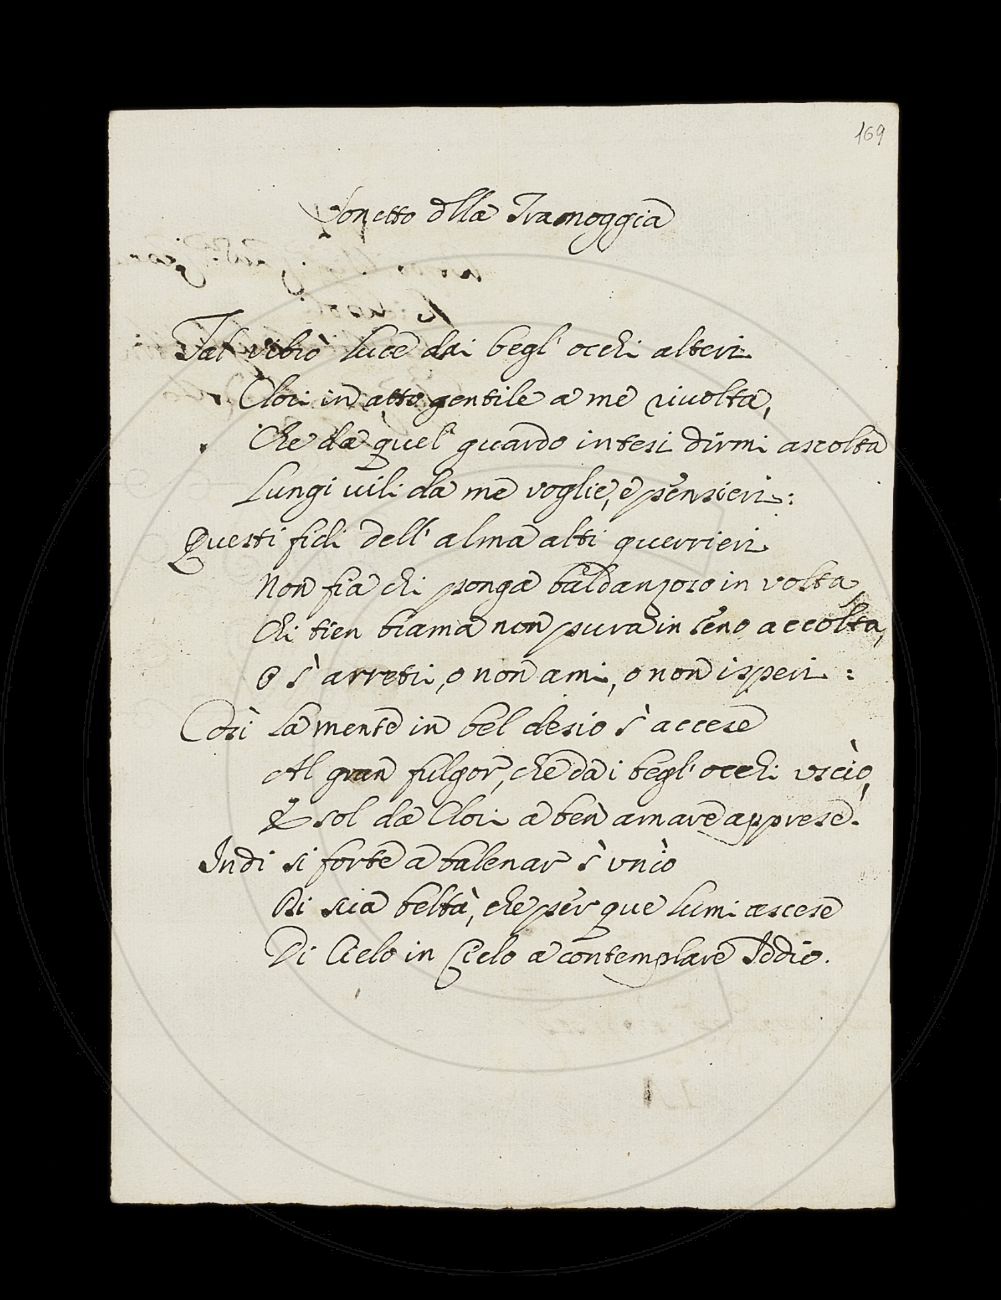 169
Sonetto dlla Tramoggia
Tal vibrò luce dai begl' occhi alteri
Clori in atto gentile a me rivolta,
Che da quel guardo intesi dirmi ascolta
Lungi vili da me voglie, e pensieri:
Questi fidi dell' alma alti guerrieri
Non fia chi ponga baldanzoso in volta,
Chi tien brama non pura in seno accolta,
O s' arretri, o non ami, o non isperi:
Così la mente in bel desio s' accese
Al gran fulgor, che da i begl' occhi uscìo,
E sol da Clori a ben amare apprese.
Indi sì forte a balenar s' unìo
Di sua beltà, che per que lumi ascese
Di Cielo in Cielo a contemplare Iddio.